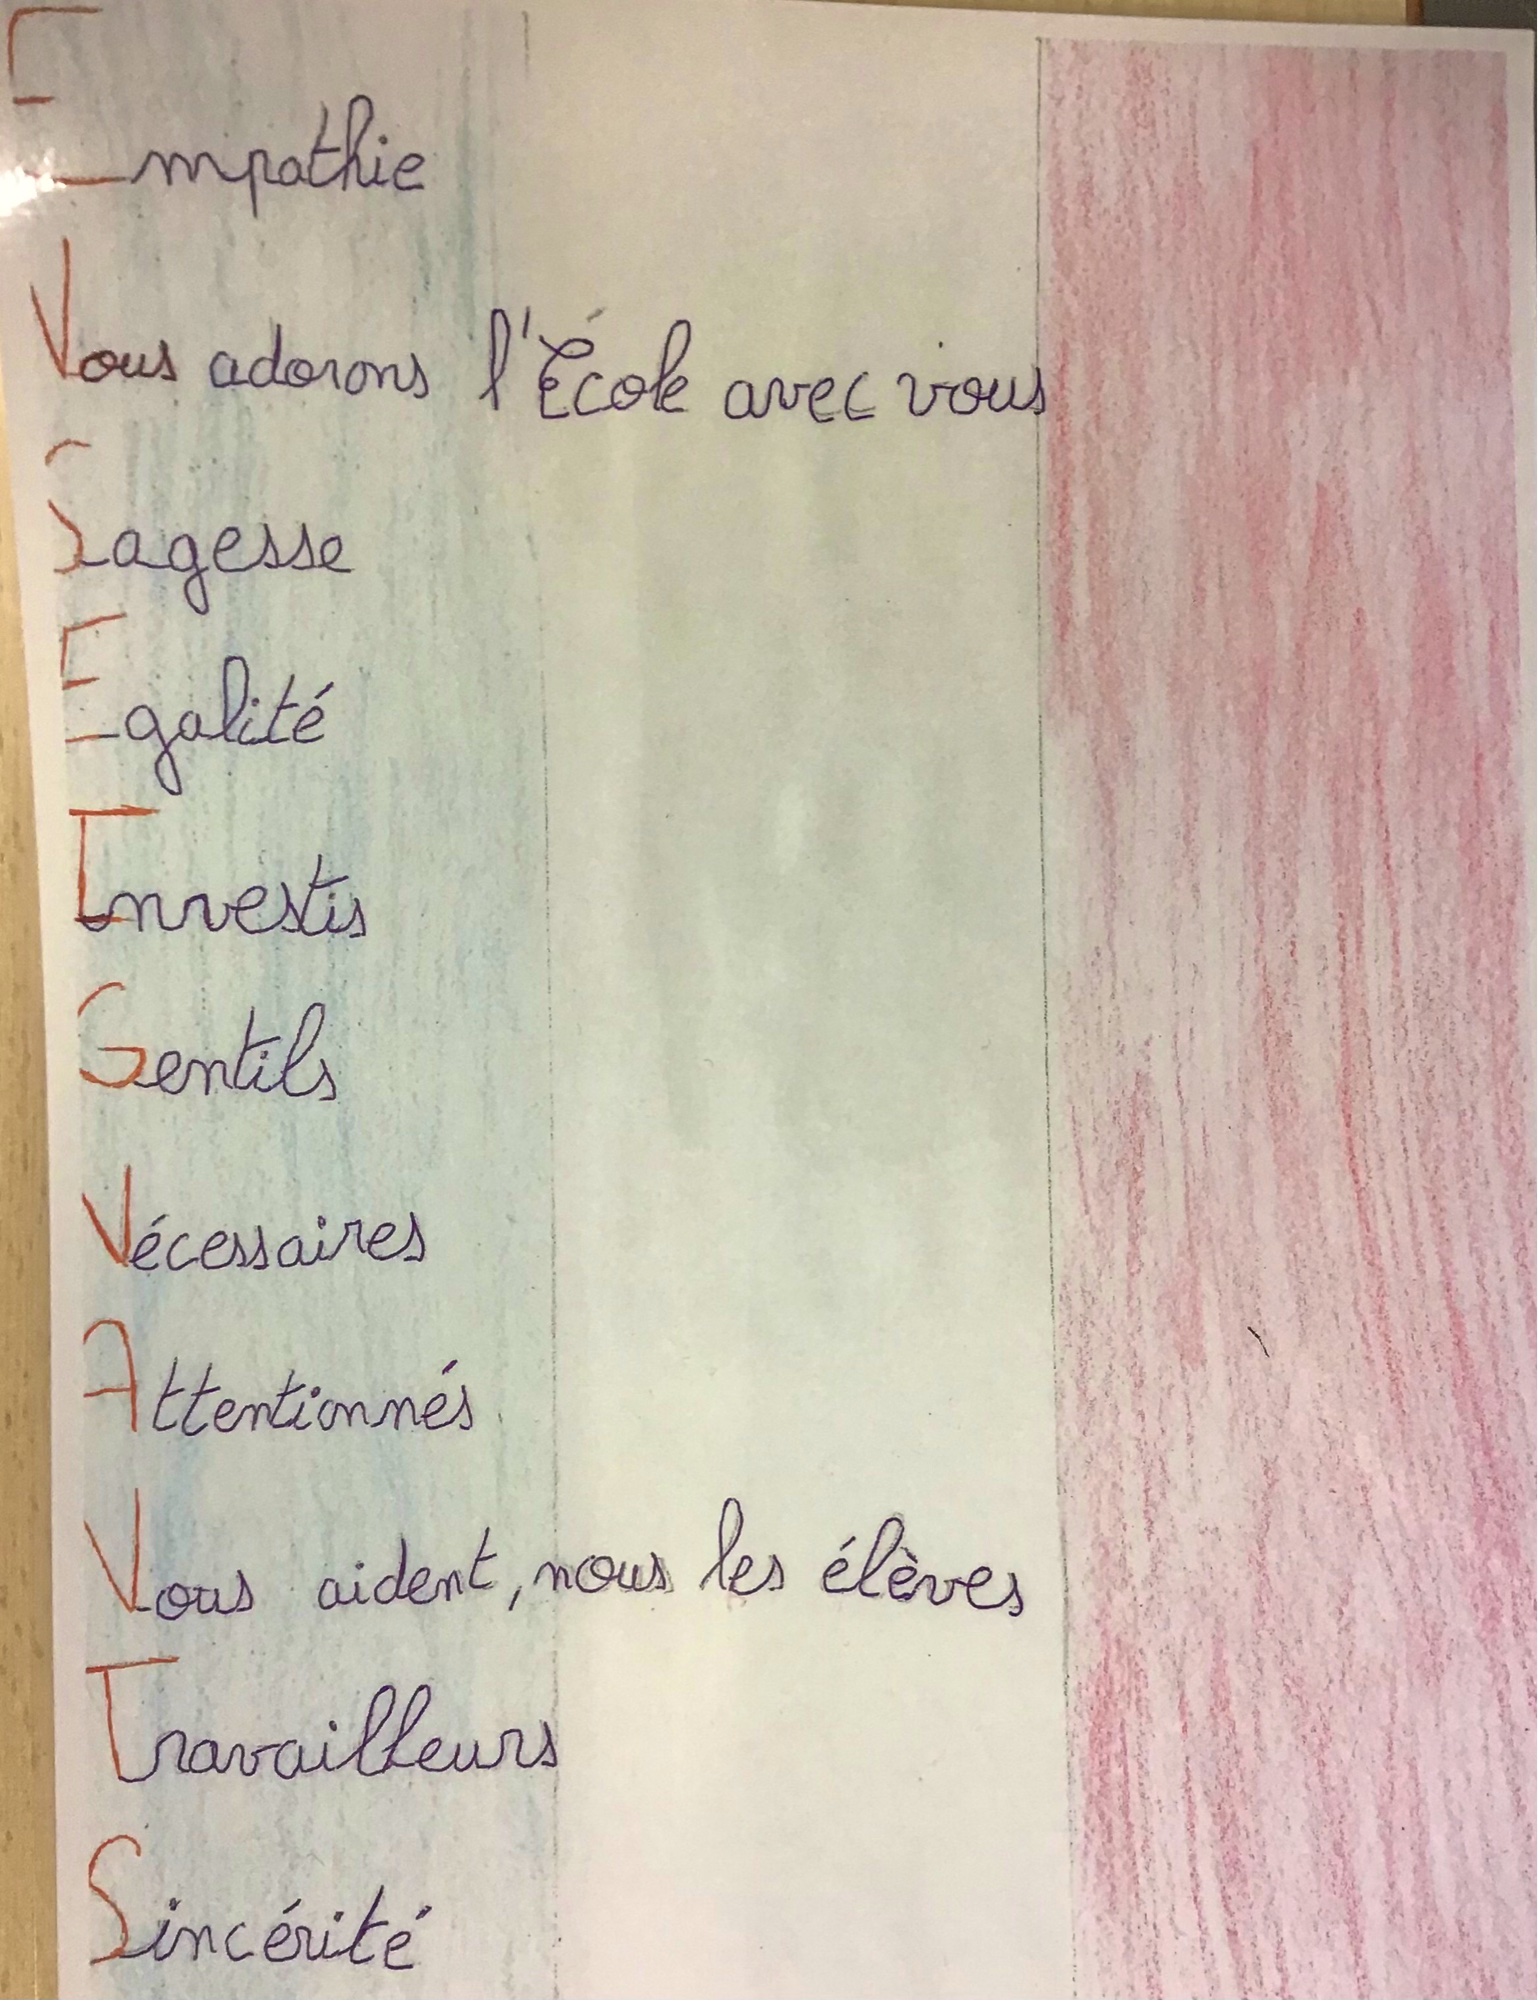 Empathie
Nous adorons l'École avec vous
Sagesse
Egalité
Investis
Gentils
Nécessaires
Attentionnés
Nous aident, nous les élèves
Travailleurs
Sincérité